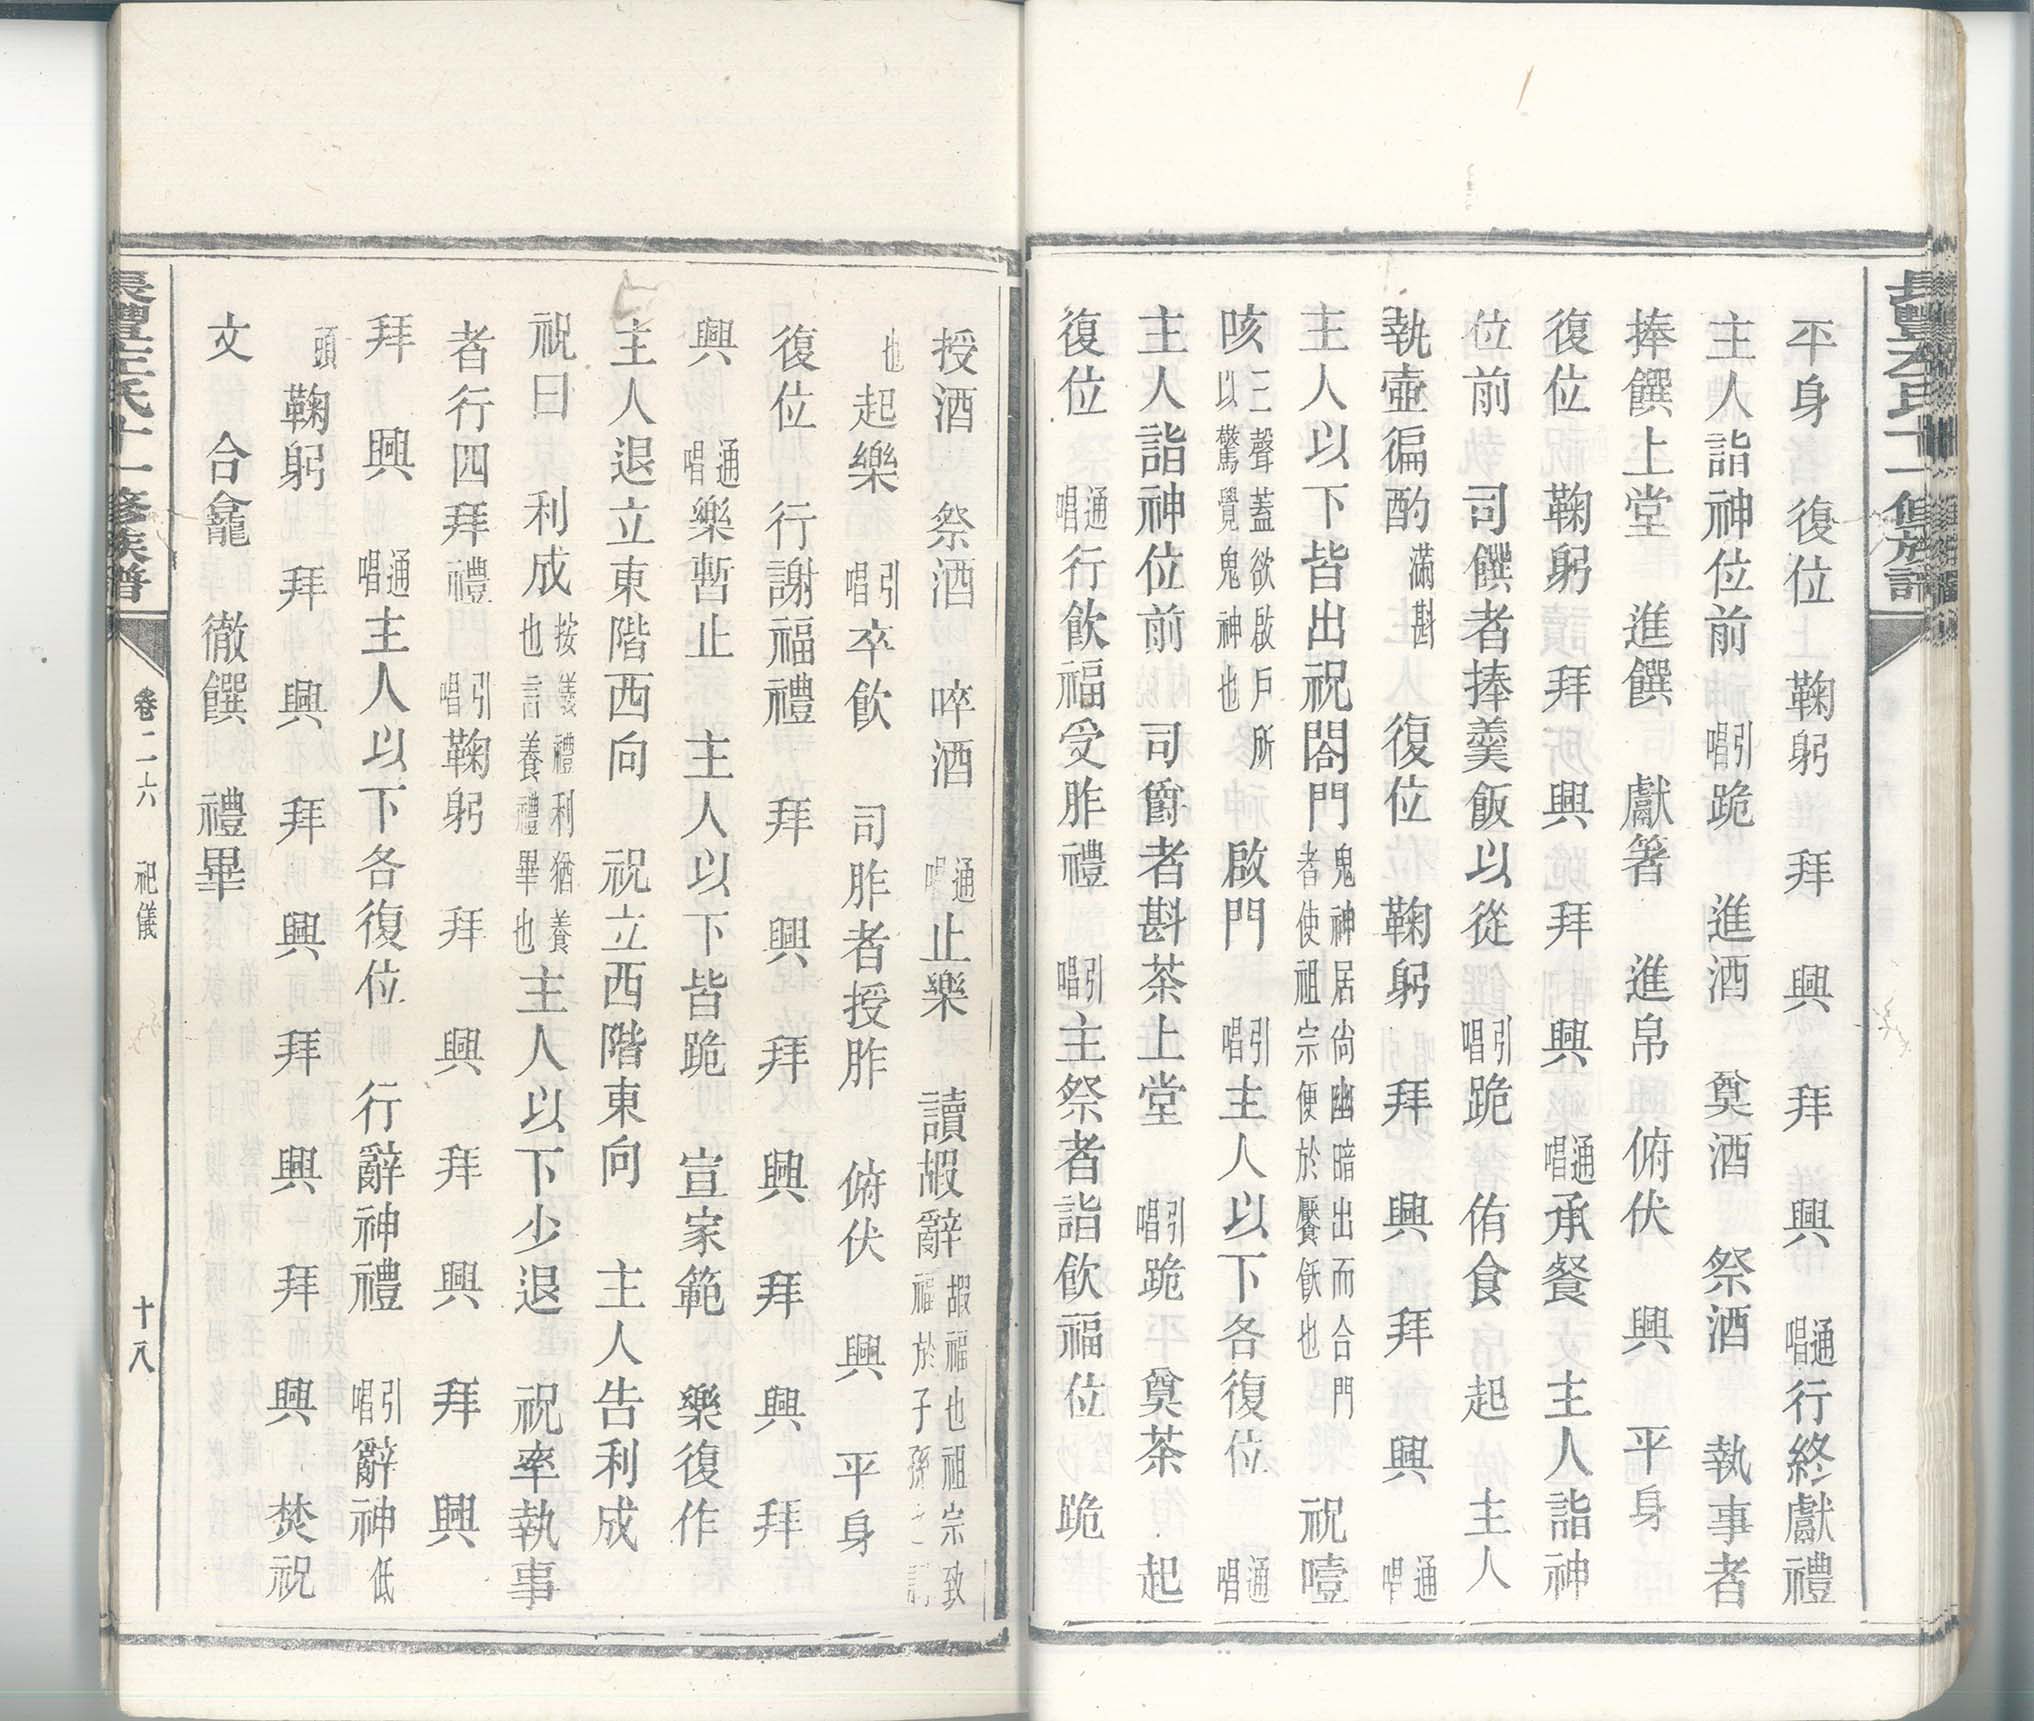 平身　復位　鞠躬　拜　興　拜　興　通唱行終獻禮
主人詣神位前　引唱跪　進酒　奠酒　祭酒　執事者
捧饌上堂　進饌　獻箸　進帛　俯伏　興　平身
復位　鞠躬　拜　興　拜　興　通唱承餐　主人詣神
位前　司饌者捧羹飯以從　引唱跪　侑食　起　主人
執壺徧酌滿斟　復位　鞠躬　拜　興　拜　興　通唱
主人以下皆出祝閤門鬼神居尙幽暗出而合門者使祖宗便於饜飫也　祝噎
咳三聲蓋欲啟戶所以驚覺鬼神也　啟門　引唱主人以下各復位　通唱
主人詣神位前　司爵者斟茶上堂　引唱跪　奠茶　起
復位　通唱行飮福受胙禮　引唱主祭者詣飮福位　跪
授酒　祭酒　啐酒　通唱止樂　讀嘏辭嘏福也祖宗致福於子孫之詞
也　起樂　引唱卒飮　司胙者授胙　俯伏　興　平身
復位　行謝福禮　拜　興　拜　興　拜　興　拜
興　通唱樂暫止　主人以下皆跪　宣家範　樂復作
主人退立東階西向　祝立西階東向　主人告利成
祝曰　利成按儀禮利猶養也言養禮畢也主人以下少退　祝率執事
者行四拜禮　引唱鞠躬　拜　興　拜　興　拜　興
拜　興　通唱主人以下各復位　行辭神禮　引唱辭神低
頭　鞠躬　拜　興　拜　興　拜　興　拜　興　焚祝
文　合龕　徹饌　禮畢
長豐左氏十一修族譜　卷二六　祀儀　十八